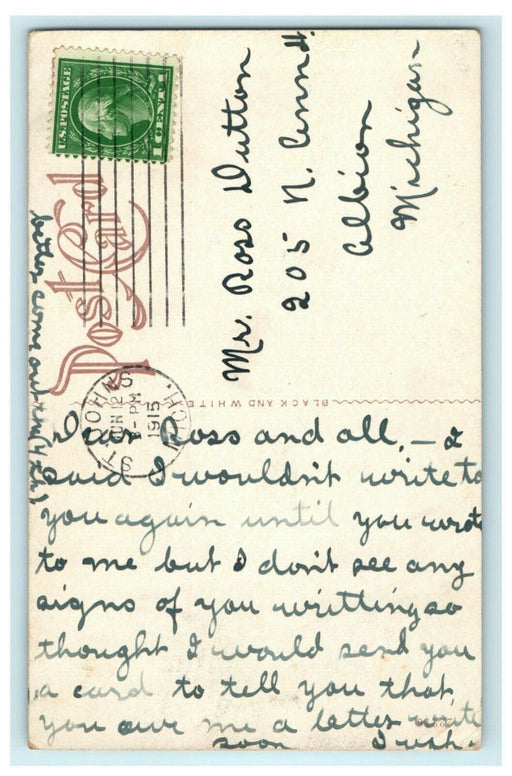 U.S. POSTAGE
1 CENT 1
Post Card
ST. JOHNS, MICH.
JUN 12
-PM
1915
Mr. Ross Dutton
205 N. Ann St.
Albion
Michigan
BLACK AND WHITE
Dear Ross and all, — I
said I wouldn't write to
you again until you wrote
to me but I don't see any
signs of you writting so
thought I would send you
a card to tell you that
you owe me a letter write
soon
better come out on (4th)